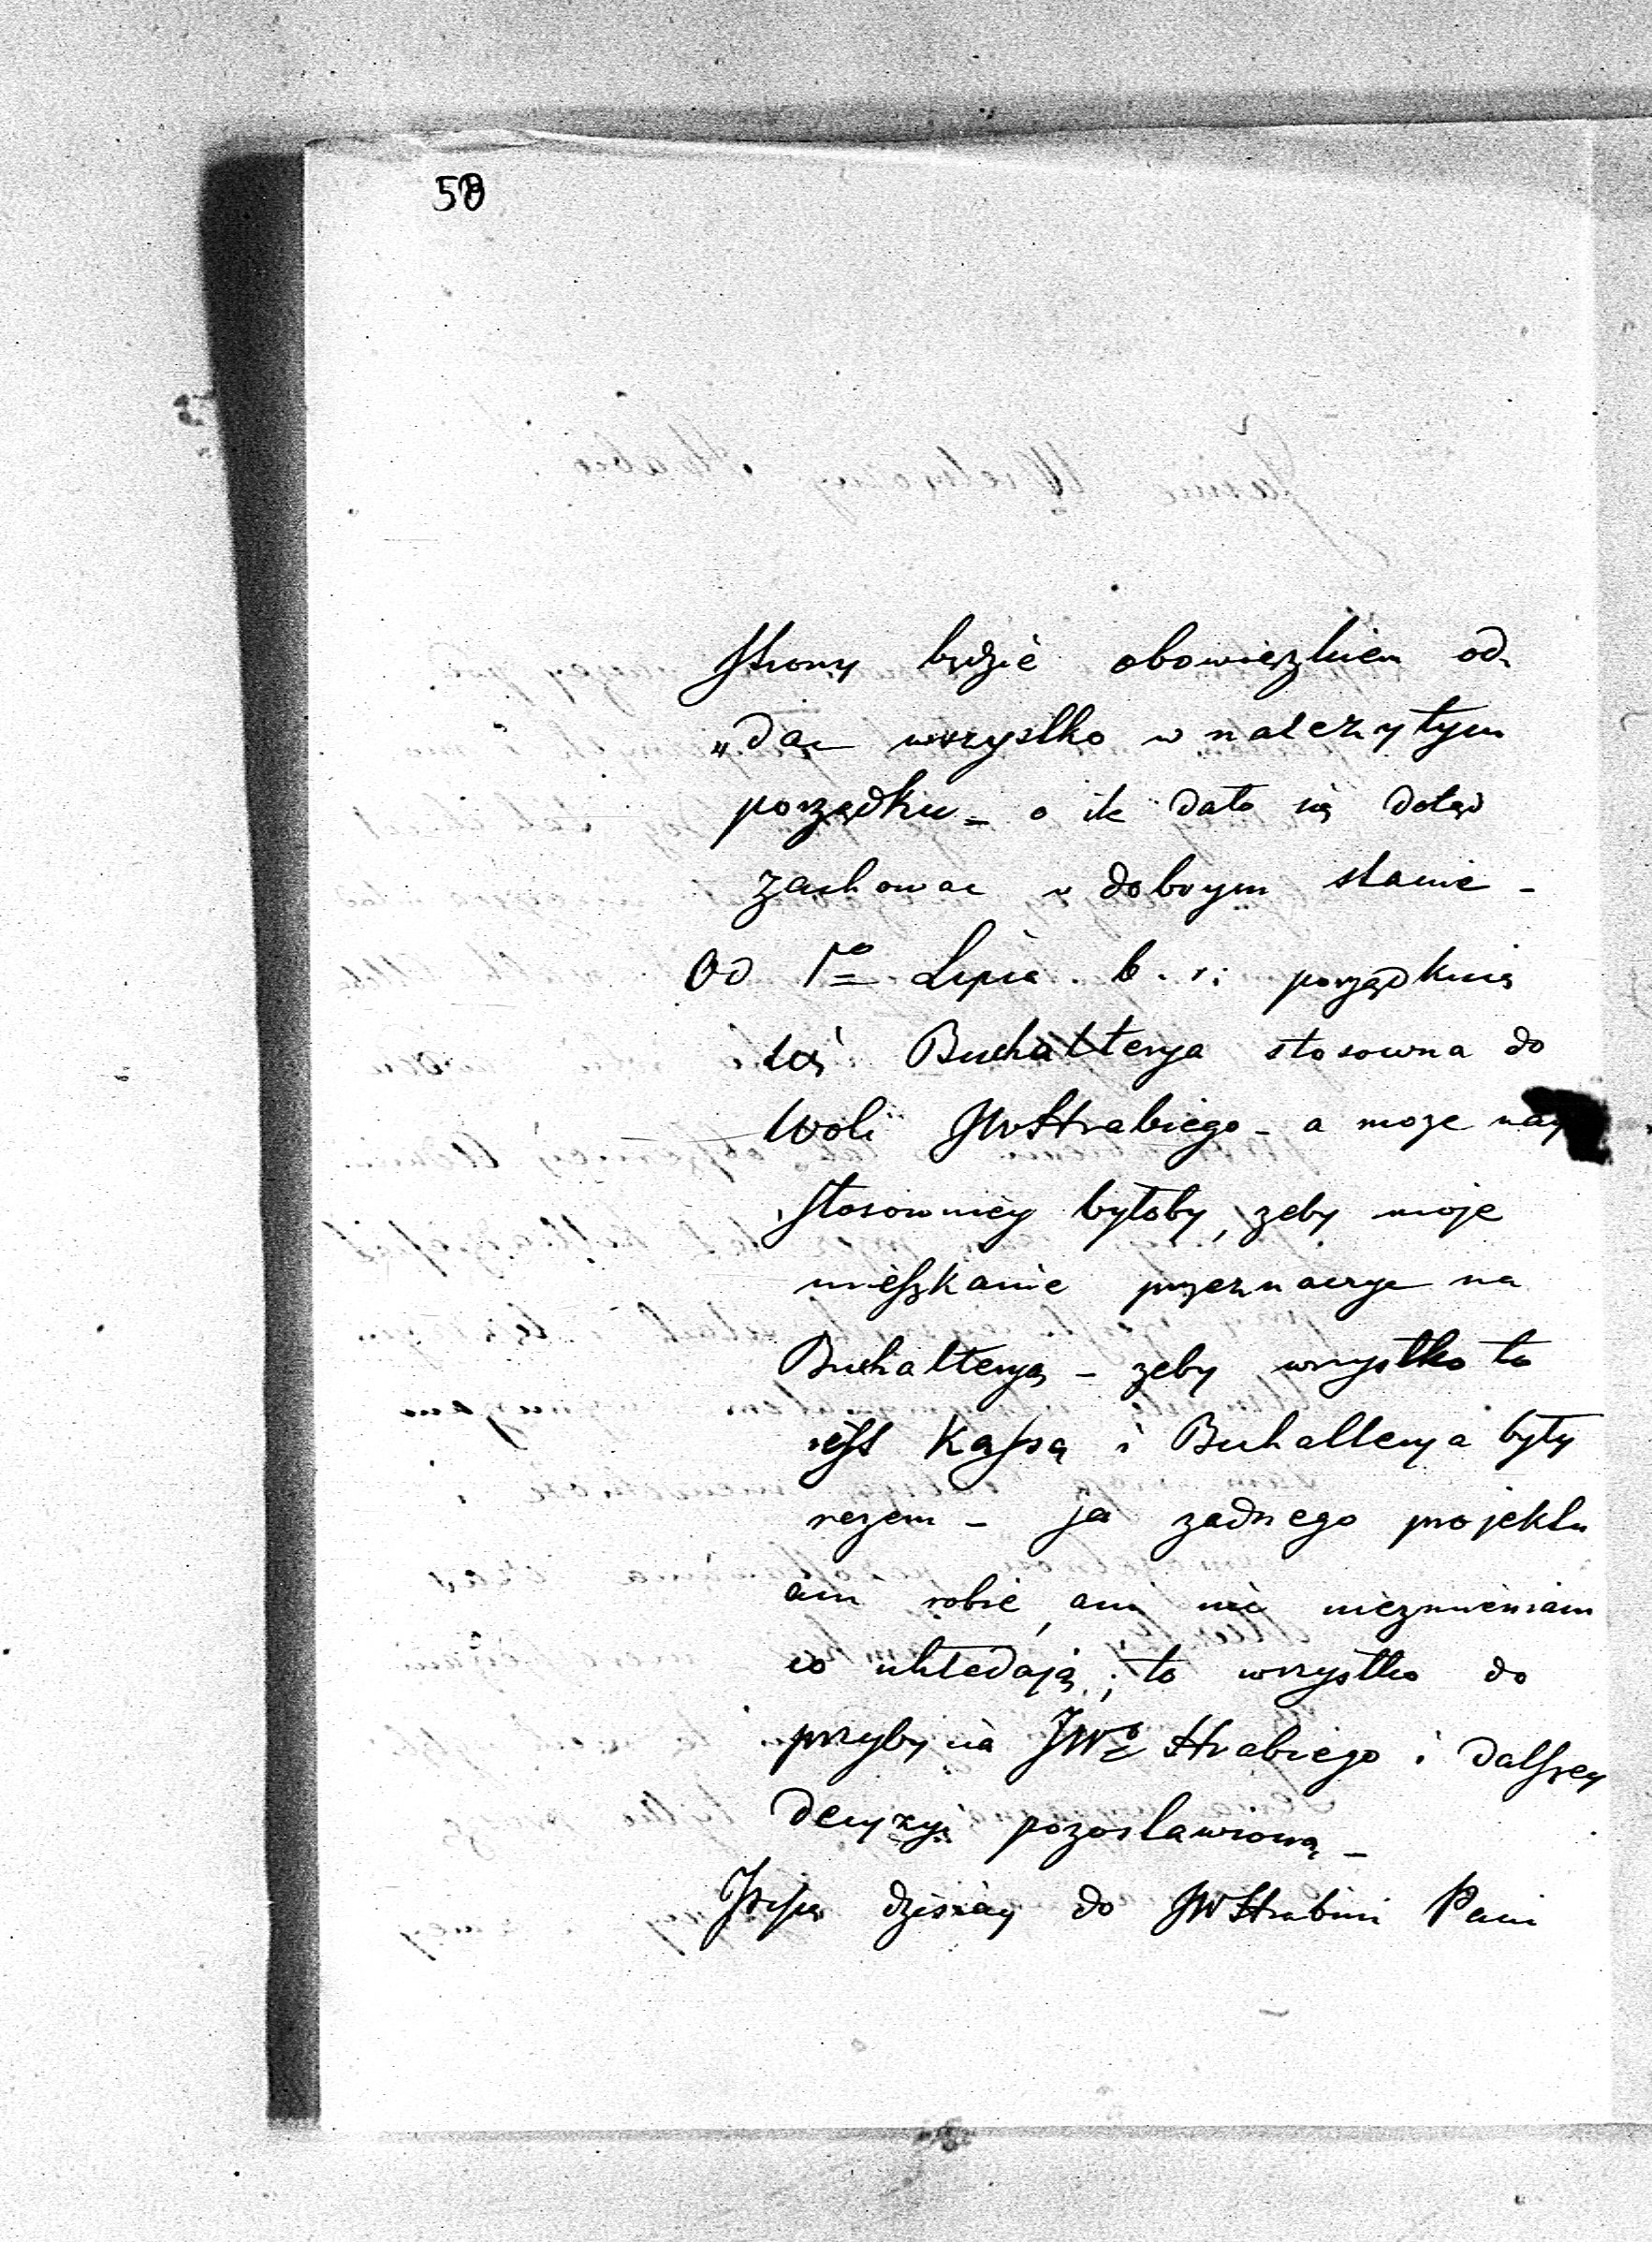 58
strony będzie obowiązkiem od„
„dac wszystko w należytym
porządku – o ile dało się dotąd
zachowac w dobrym stanie –
Od 1go Lipca b. r. porządkuię
Buchalterya stosowna do
Woli JWHrabiego – a moze nay
stosowniey byłoby, zeby moje
mieszkanie przeznaczyc na
Buchalteryą – zeby wszystko to
iest Kassa i Buchalterya były
razem – ja zadnego projektu
ani robie, ani nic niezmieniam
co układają; to wszystko do
przybycia JWo Hrabiego i dalszey
decyzyi pozostawioną –
dzisiay do JWHrabini Pani